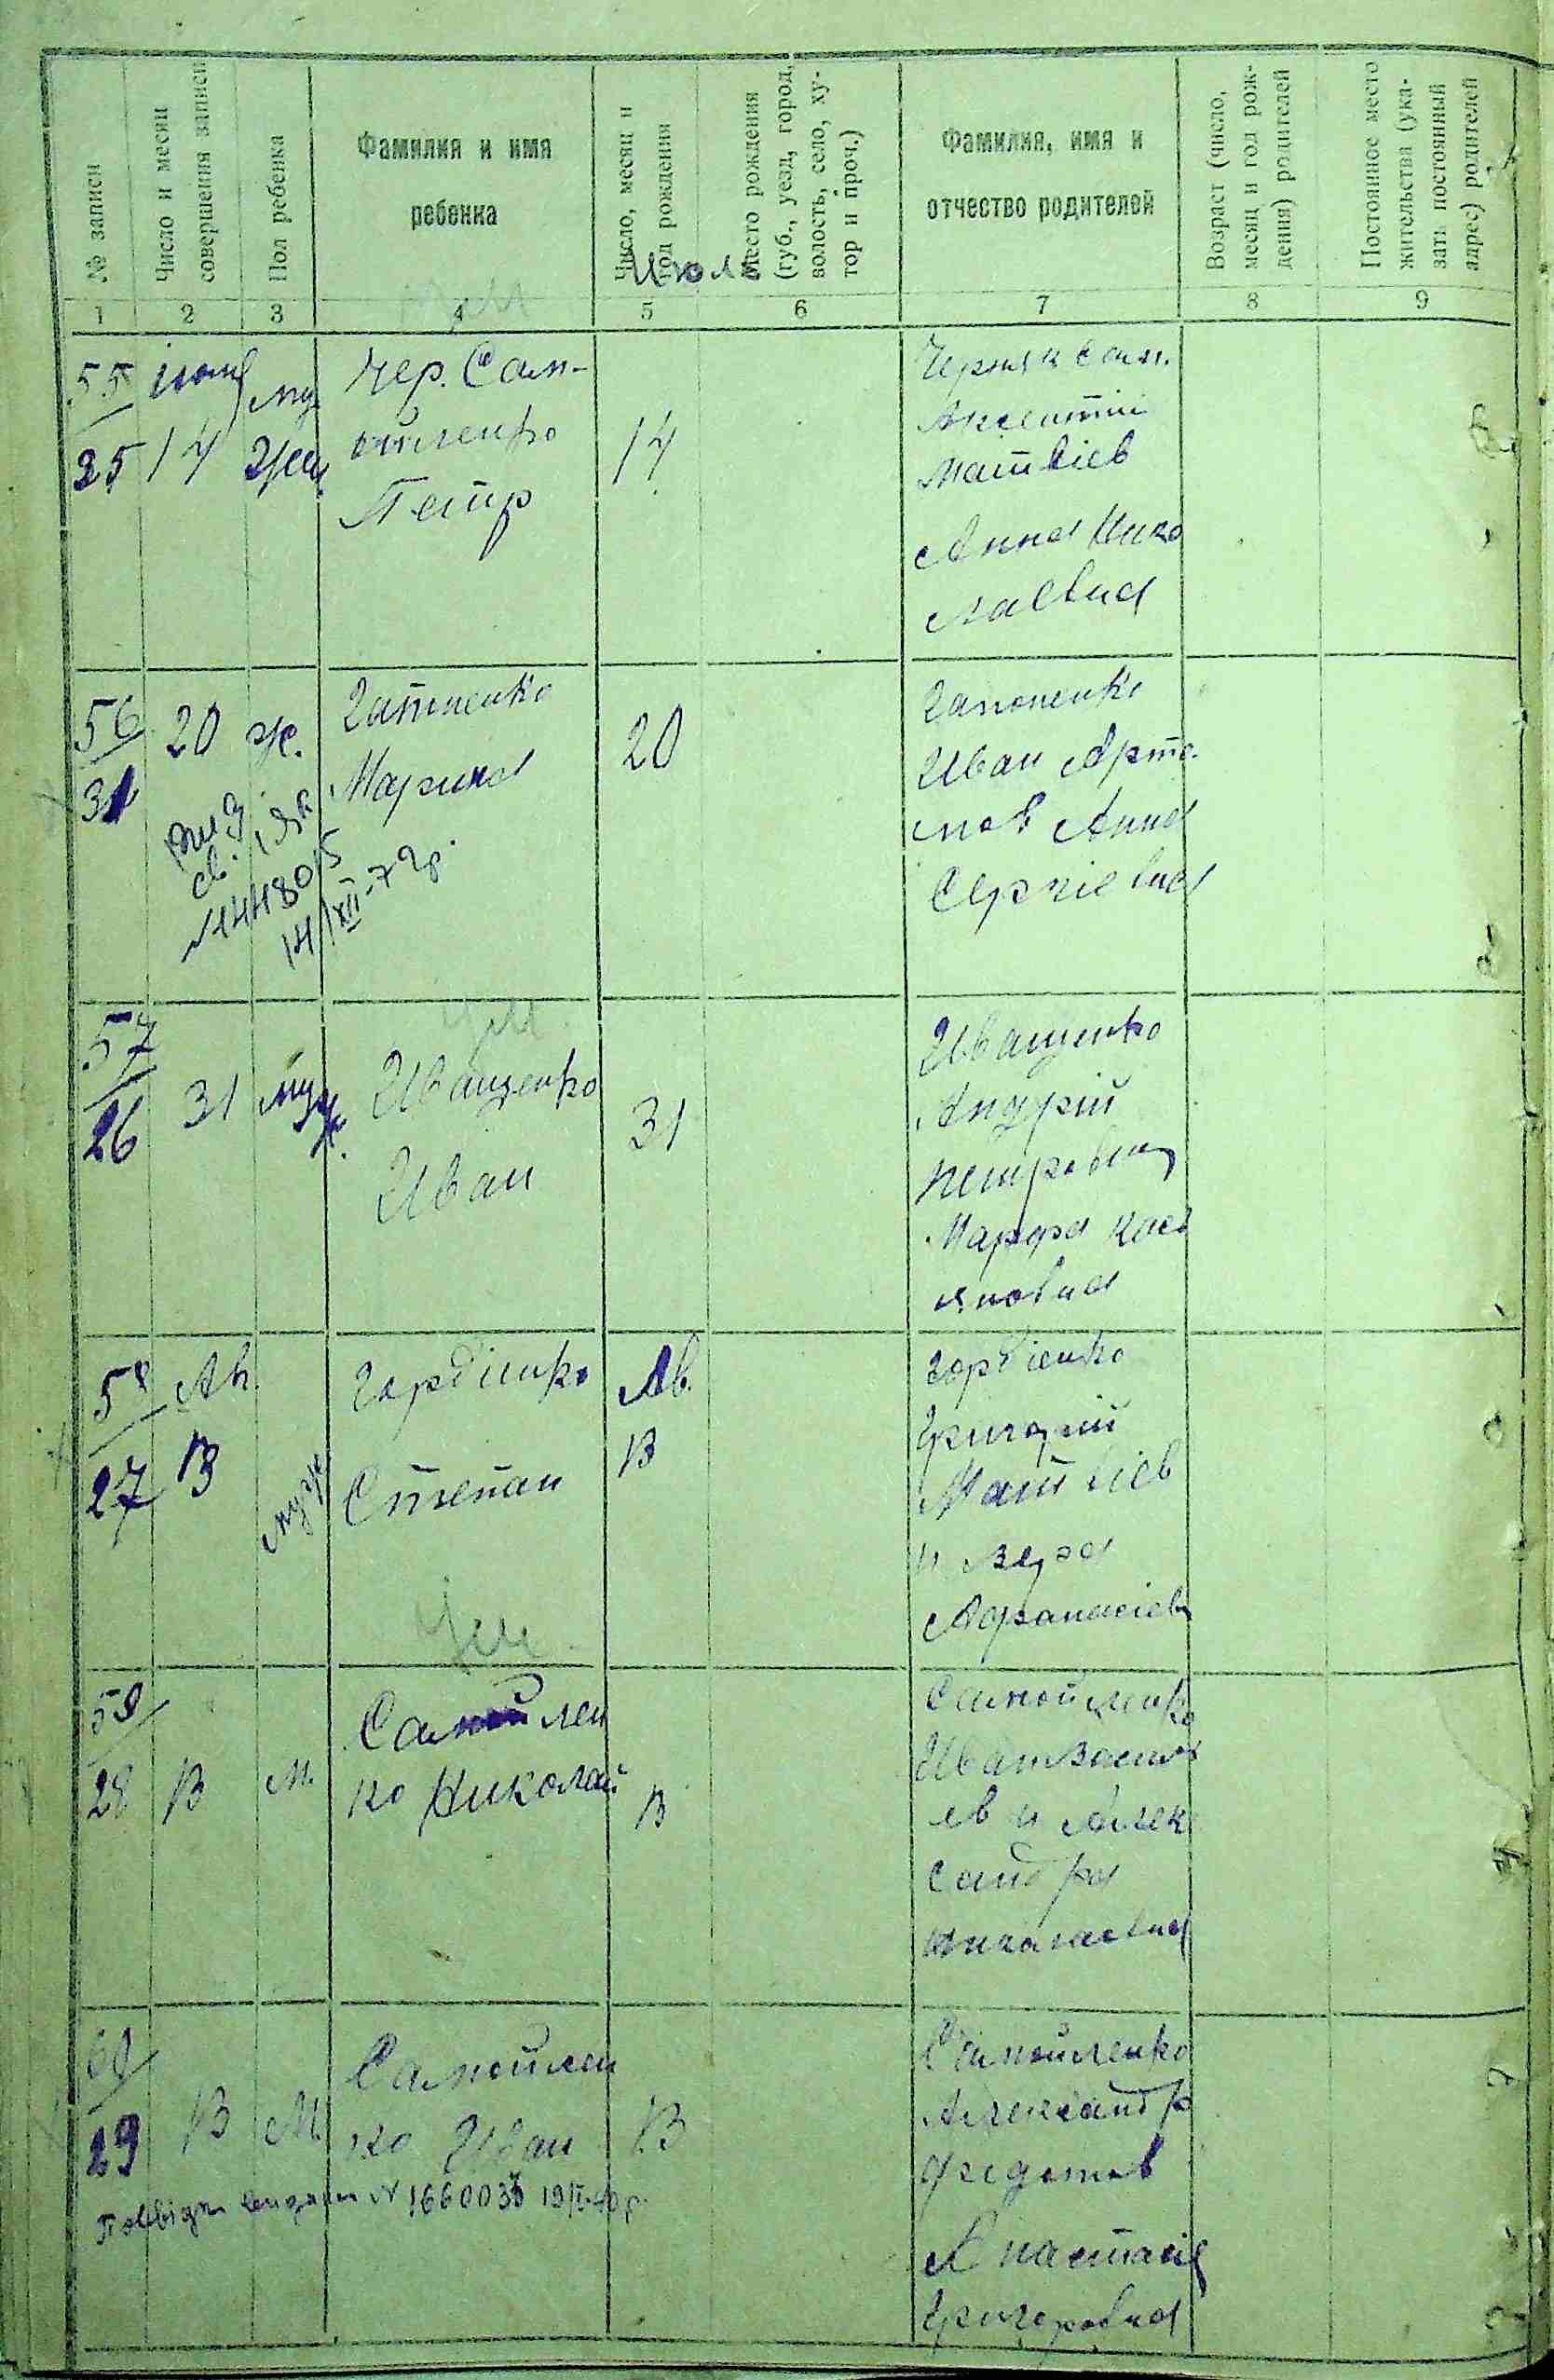 № записи
Число и месяц
совершения записи
Пол ребенка
Фамилия и имя
ребенка
Число, месяц и
год рождения
Место рождения
(губ., уезд, город,
волость, село, ху-
тор и проч.)
Фамилия, имя и
отчество родителей
Возраст (число,
месяц и год рож-
дения) родителей
Постоянное место
жительства (ука-
зать постоянный
адрес) родителей
Июль
1 2 3 4 5 6 7 8 9
55
25
14
Чер. Сам-
ойленко
Петр
14
Черняк Сам.
Аксентий
Матвіев
Анна Нико
лаевна
56
31
20
ж.
Гапоненко
Марина
20
Гапоненко
Иван Арта-
мов Анна
Сергіевна
14/XII-72р.
57
26
31
муж.
Иващенко
Иван
31
Иващенко
Андрій
Петрович
Марфа Кась
яновна
58
27
Ав.
13
муж
Гордіенко
Степан
Ав.
13
Гордіенко
Григорий
Матвіев
и Вера
Афанасіев
59
28
13
м.
Самойлен
ко Николай
13
Самойленко
Иван Васил
ев и Алек
сандра
Николаевна
60
29
13
М.
Самойлен
ко Иван
13
Самойленко
Александр
Федотов
Анастасія
Григоровна